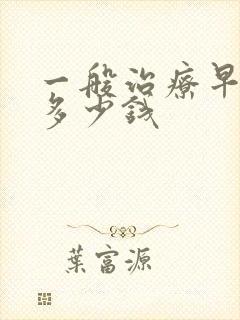 一般治療早
多少錢
葉富源